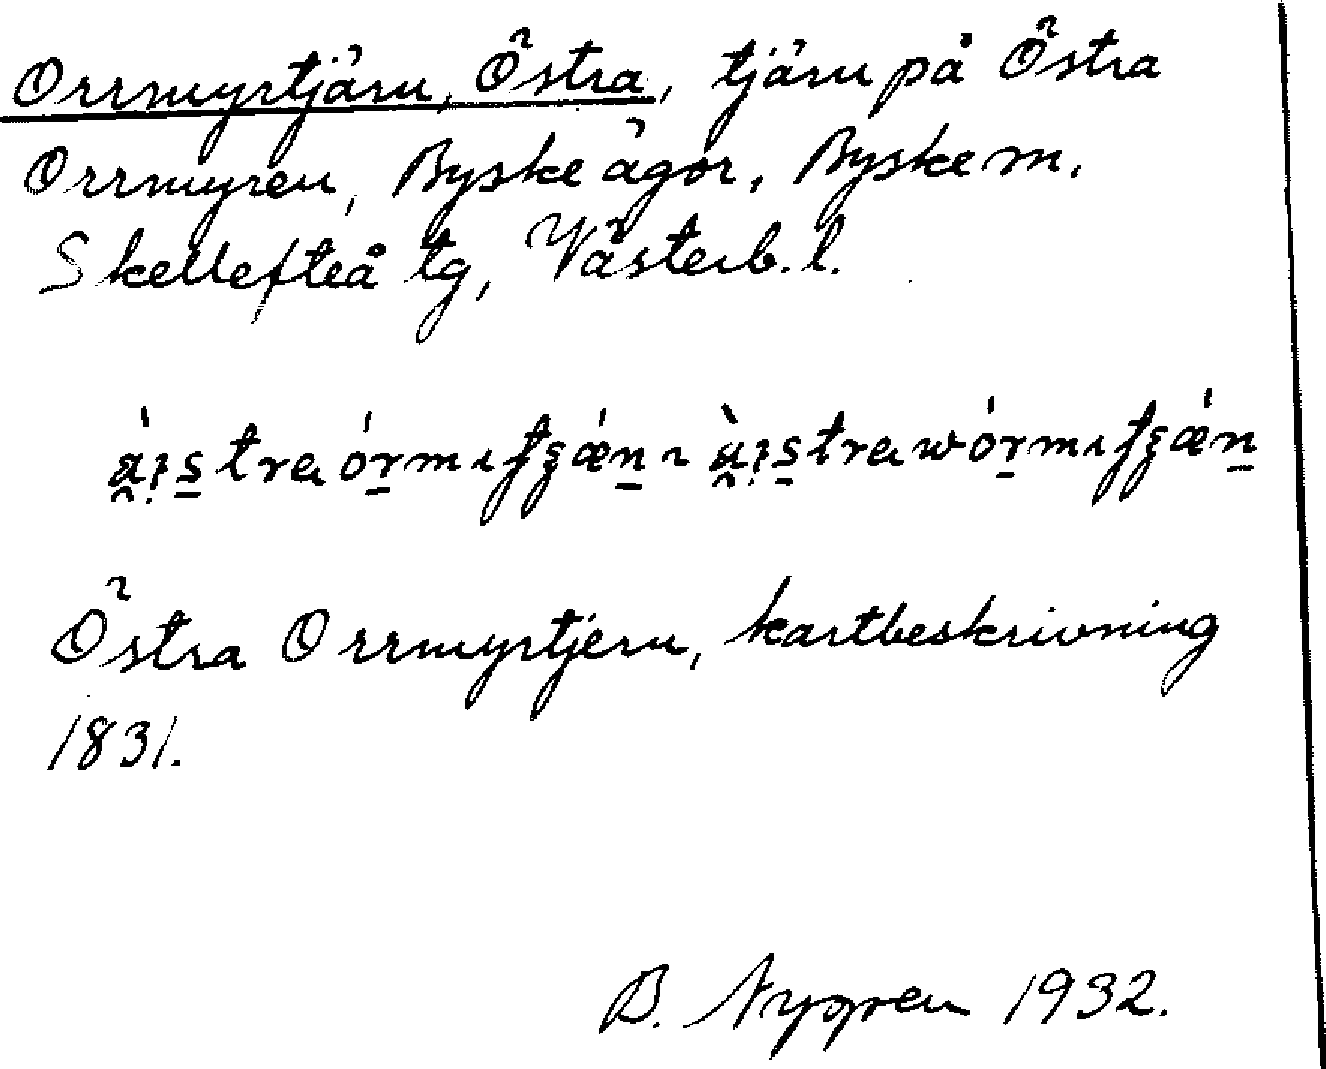 Orrmyrtjärn, Östra, tjärn på Östra
Orrmyren, Byske ägor, Byske m.
Skellefteå tg, Västerb. l.
Östra Orrmyrtjern, kartbeskrivning
1831.
B. Nygren 1932.